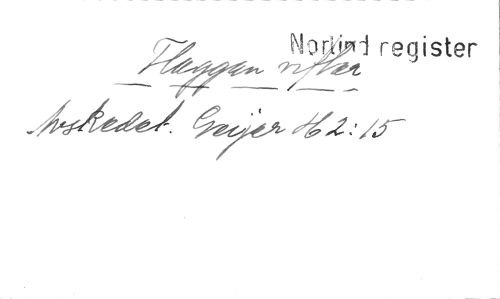 Norlind register
Flaggan viftar
Avskedet. Geijer H2:15